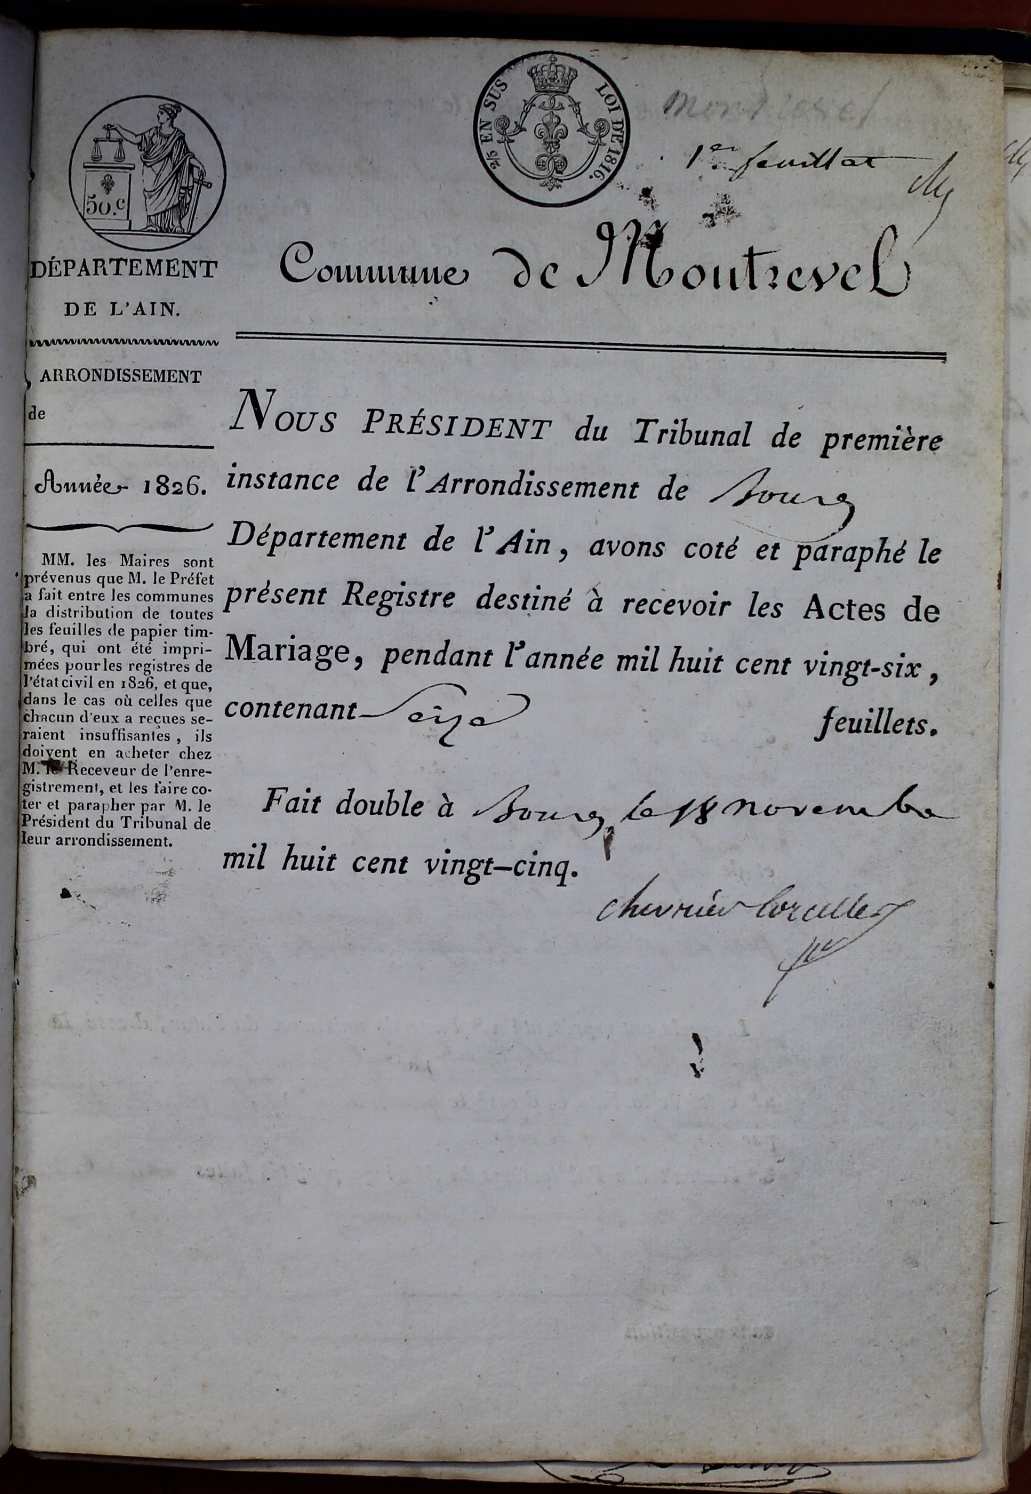 Montrevel
2/5 EN SUS LOI DE 1816.
1er feuillet
50.c
DÉPARTEMENT
DE L'AIN.
Commune de Montrevel
ARRONDISSEMENT
de
Année 1826.
MM. les Maires sont
prévenus que M. le Préfet
a fait entre les communes
la distribution de toutes
les feuilles de papier tim-
bré, qui ont été impri-
mées pour les registres de
l'état civil en 1826, et que,
dans le cas où celles que
chacun d'eux a reçues se-
raient insuffisantes, ils
doivent en acheter chez
M. le Receveur de l'enre-
gistrement, et les faire co-
ter et parapher par M. le
Président du Tribunal de
leur arrondissement.
NOUS PRÉSIDENT du Tribunal de première
instance de l'Arrondissement de Bourg
Département de l'Ain, avons coté et paraphé le
présent Registre destiné à recevoir les Actes de
Mariage, pendant l'année mil huit cent vingt-six,
contenant Seize feuillets.
Fait double à Bourg, le 18 novembre
mil huit cent vingt-cinq.
chevrier Corcelles